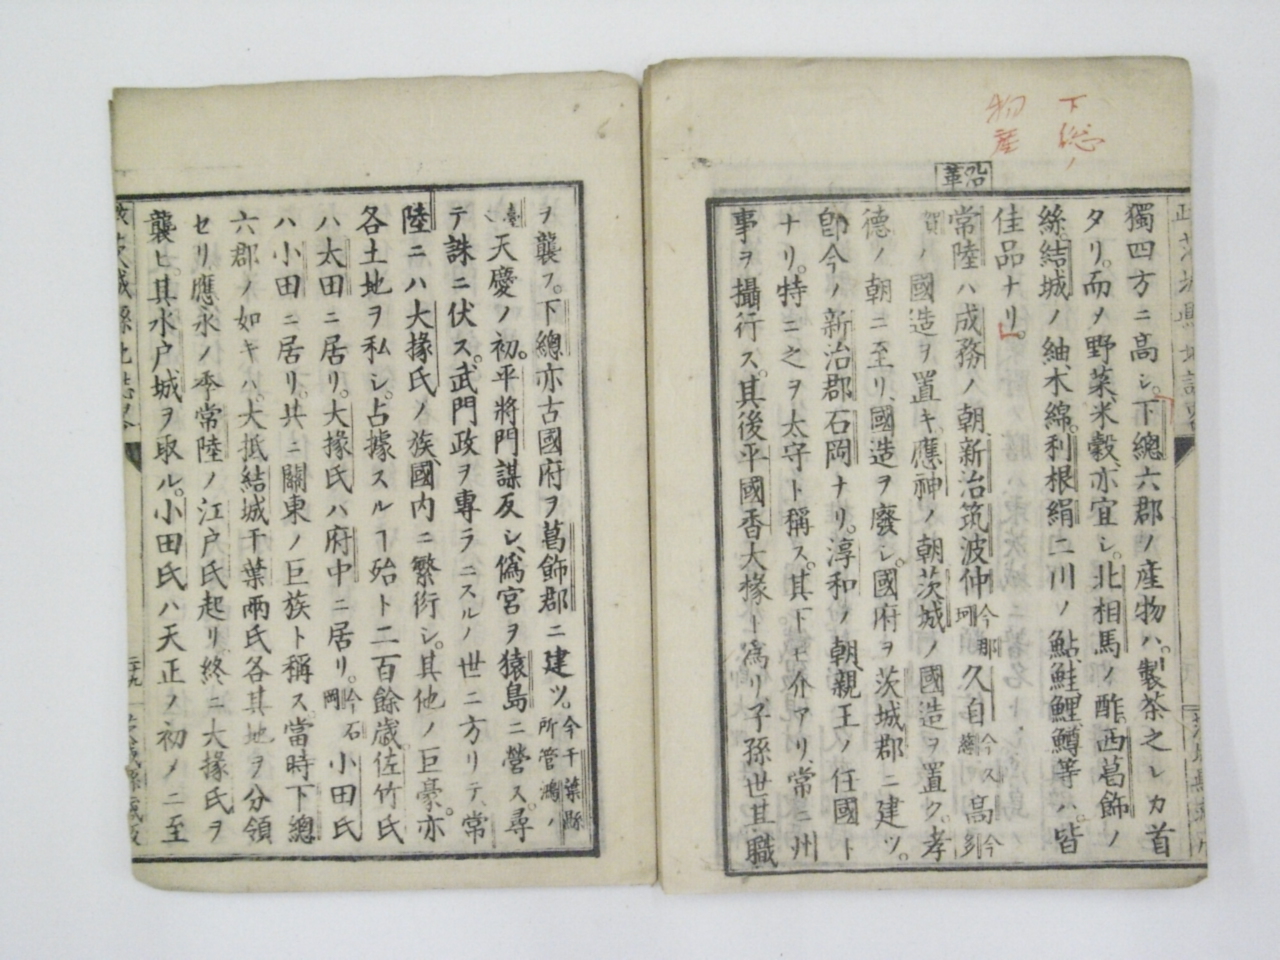 下総ノ
物産
沿革
獨四方ニ高シ。下總六郡ノ産物ハ。製茶之レカ首
タリ。而メ野菜、米穀、亦宜シ。北相馬ノ酢。西葛飾ノ
絲、結城ノ紬、木綿。利根絹二川ノ鮎、鮭、鯉、鱒等ハ。皆
佳品ナリ。
常陸ハ成務ノ朝、新治筑波仲今那珂久自今久慈高今多
賀ノ國造ヲ置キ、應神ノ朝茨城ノ國造ヲ置ク。孝
德ノ朝ニ至リ、國造ヲ廢シ。國府ヲ茨城郡ニ建ツ。
卽今ノ新治郡石岡ナリ。淳和ノ朝、親王ノ任國ト
ナリ。特ニ之ヲ太守ト稱ス。其下ニ介アリ、常ニ州
事ヲ攝行ス。其後平國香大掾ト爲リ子孫世其職
ヲ襲フ。下總亦古國府ヲ葛飾郡ニ建ツ。今千葉縣所管鴻ノ
臺天慶ノ初。平將門謀反シ、僞宮ヲ猿島ニ營ス。尋
テ誅ニ伏ス。武門政ヲ專ラニスルノ世ニ方リテ、常
陸ニハ大掾氏ノ族、國内ニ繁衍シ。其他ノ巨豪。亦
各土地ヲ私シ。占據スルヿ殆ト二百餘歳。佐竹氏
ハ太田ニ居リ。大掾氏ハ府中ニ居リ。今石岡小田氏
ハ小田ニ居リ。共ニ關東ノ巨族ト稱ス。當時下總
六郡ノ如キハ。大抵結城千葉兩氏各其地ヲ分領
セリ應永ノ季常陸ノ江戸氏起リ。終ニ大掾氏ヲ
襲ヒ。其水戸城ヲ取ル。小田氏ハ天正ノ初メニ至
二十九